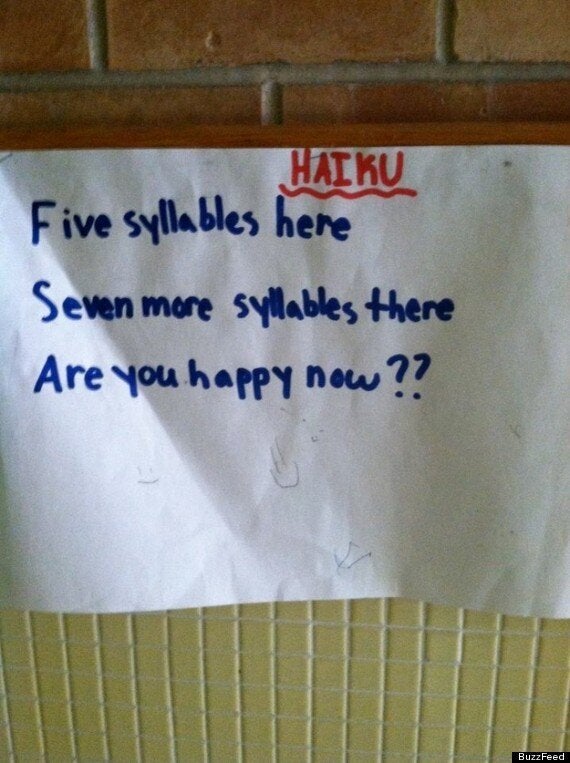 HAIKU
Five syllables here
Seven more syllables there
Are you happy now??
BuzzFeed